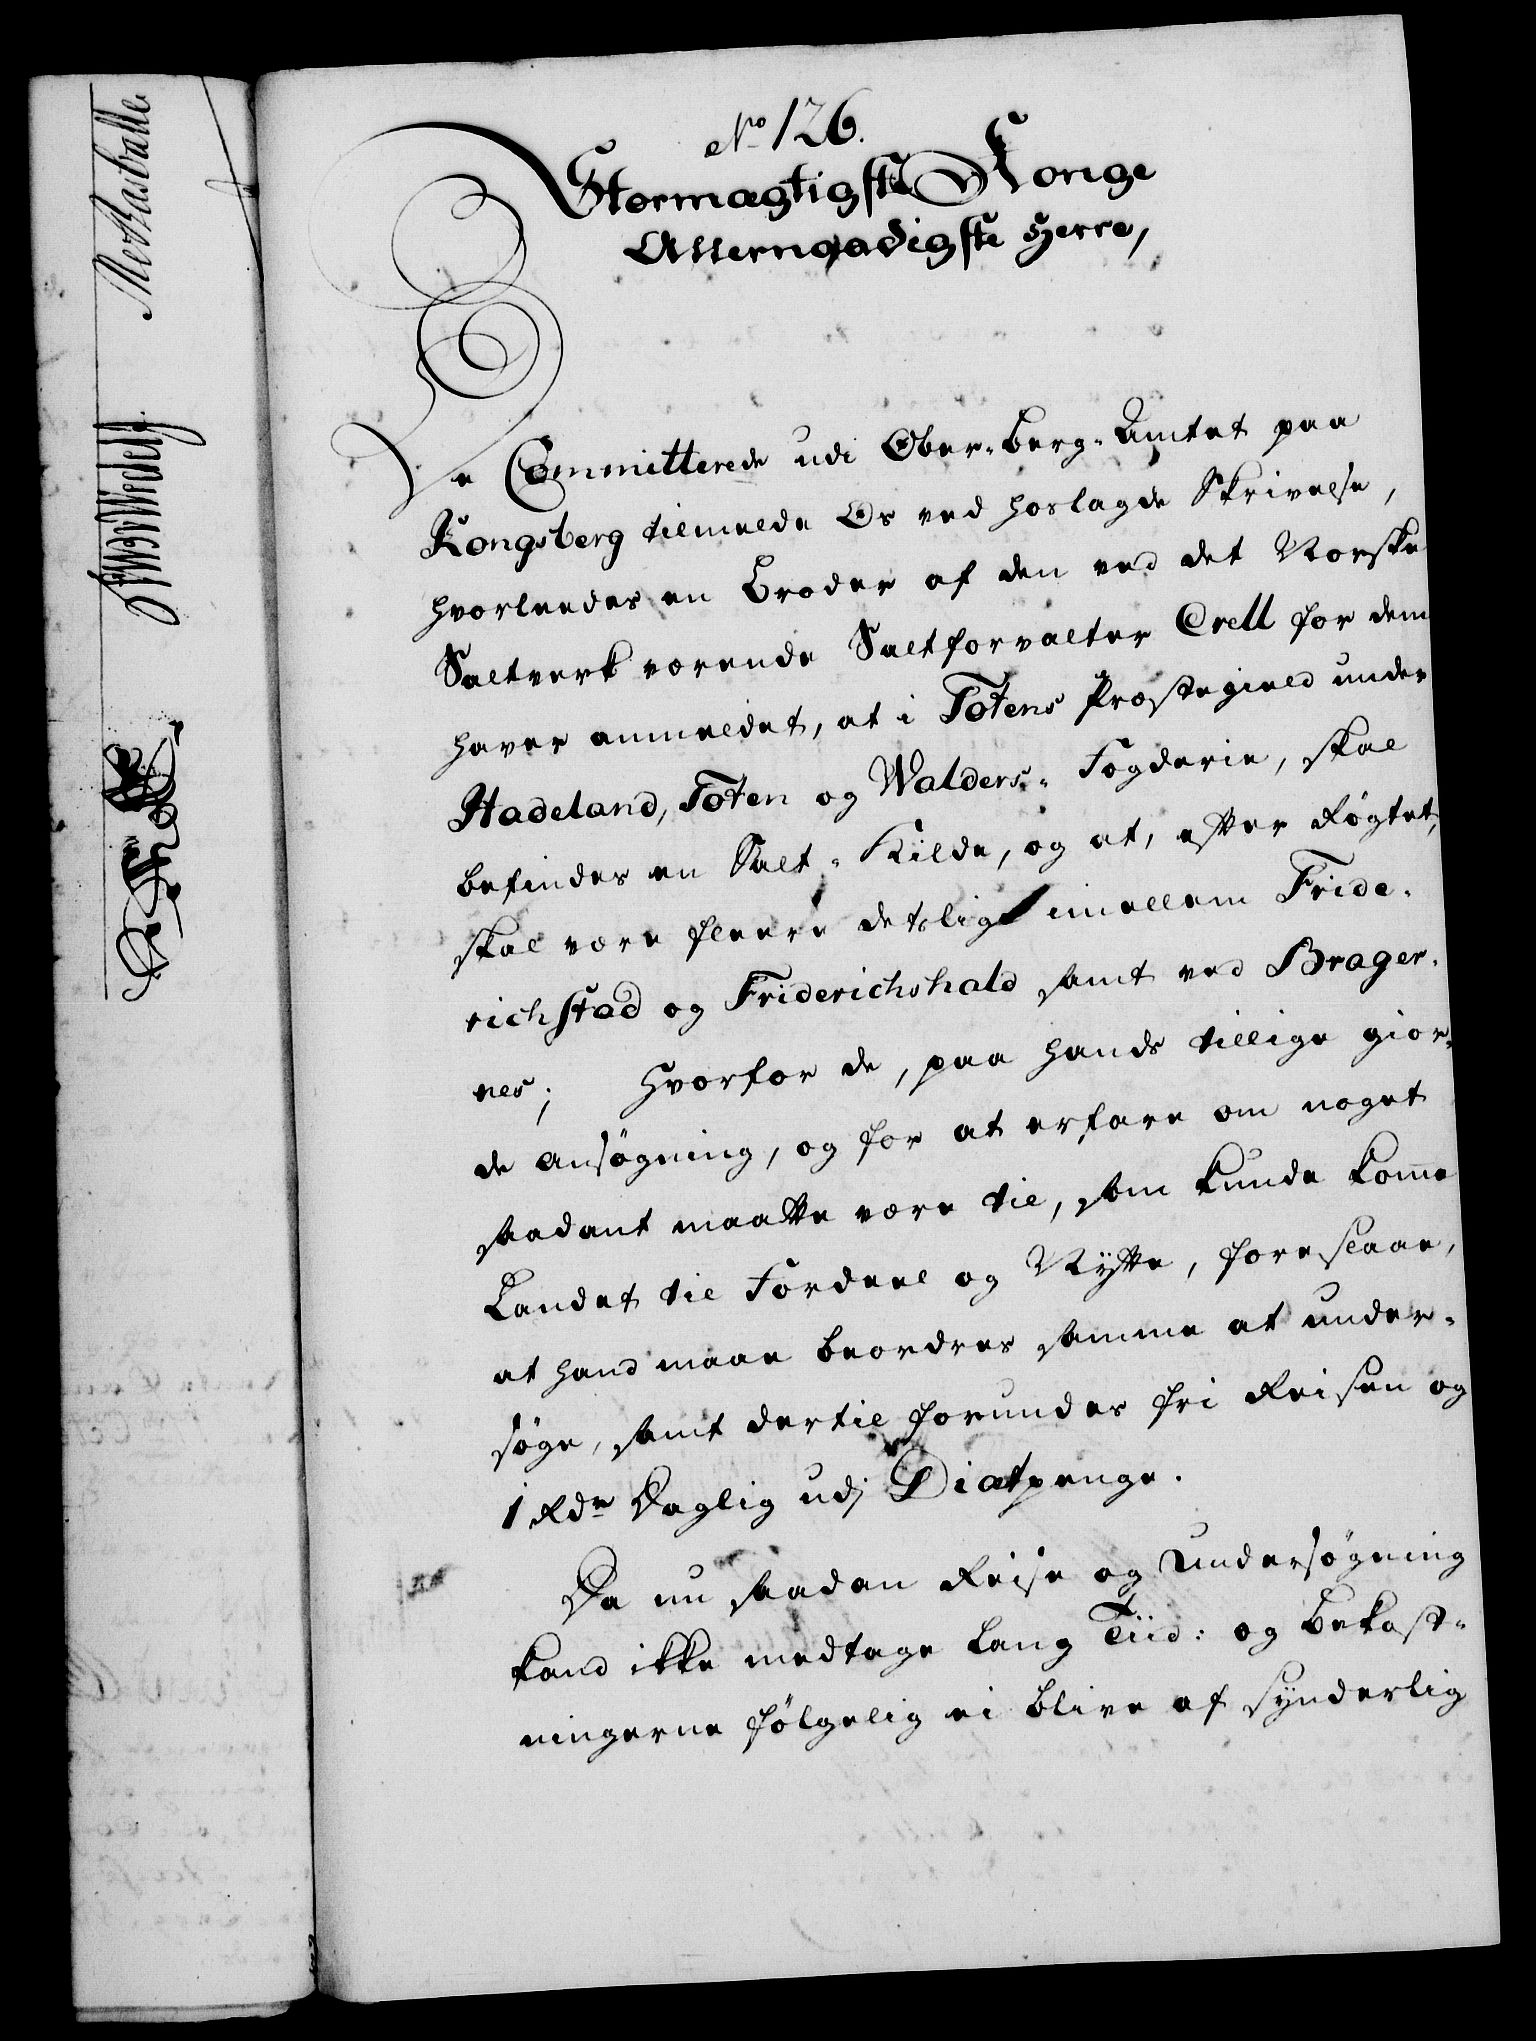 No 126.
Stormægtigste Konge
Allernaadigste Herre,
De Committerede udi Ober-Berg-Amtet paa
Kongsberg tilmelde Os ved hoslagde Skrivelse,
hvorleedes en Broder af den ved det Norske
Saltverk værende Saltforvalter Crell for dem
haver anmeldet, at i Totens Præstegield under
Hadeland, Toten og Walders-Fogderie, skal
befindes en Salt-Kilde, og at, efter Røgtet,
skal være fleere detslige imellem Fride-
richstad og Friderichshald samt ved Brager-
nes; Hvorfor de, paa hands tillige gior-
de Ansøgning, og for at erfare om noget
saadant maatte være til, som kunde komme
Landet til Fordeel og Nytte, foreslaae,
at hand maae beordres samme at under-
søge, samt dertil forundes fri Reisen og
1 Rdr Daglig udj Diætpenge.
Da nu saadan Reise og Undersøgning
kand ikke medtage lang Tiid: og Bekost-
ningerne følgelig ei blive af synderlig